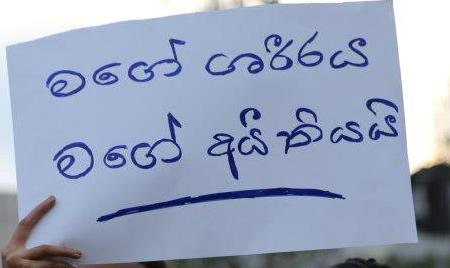 මගේ ශරීරය
මගේ අයිතියයි